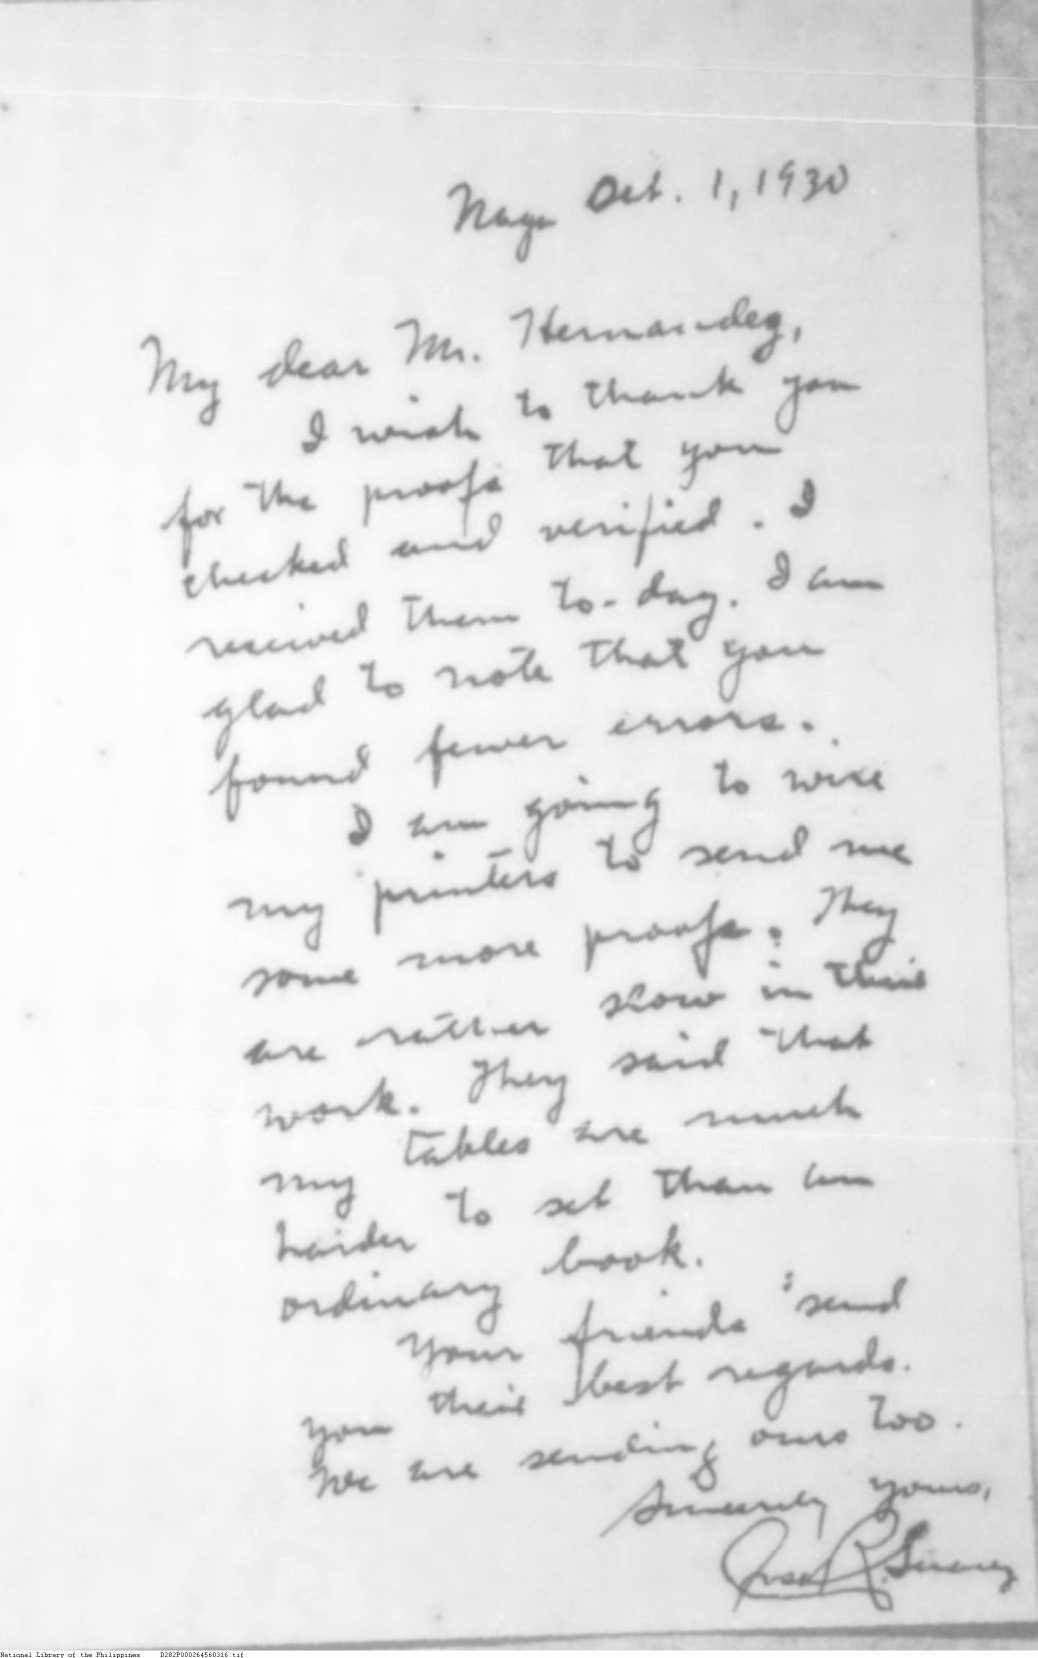 Naga Oct. 1, 1930
My dear Mr. Hernandez,
I wish to thank you
for the proofs that you
checked and verified. I
received them to-day. I am
glad to note that you
found fewer errors.
I am going to wire
my printers to send me
some more proofs. They
are rather slow in their
work. They said that
my tables are much
harder to set than an
ordinary book.
Your friends send
you their best regards.
We are sending ours too.
Sincerely yours,
Jose R.
National Library of the Philippines D282P000264560316.tif